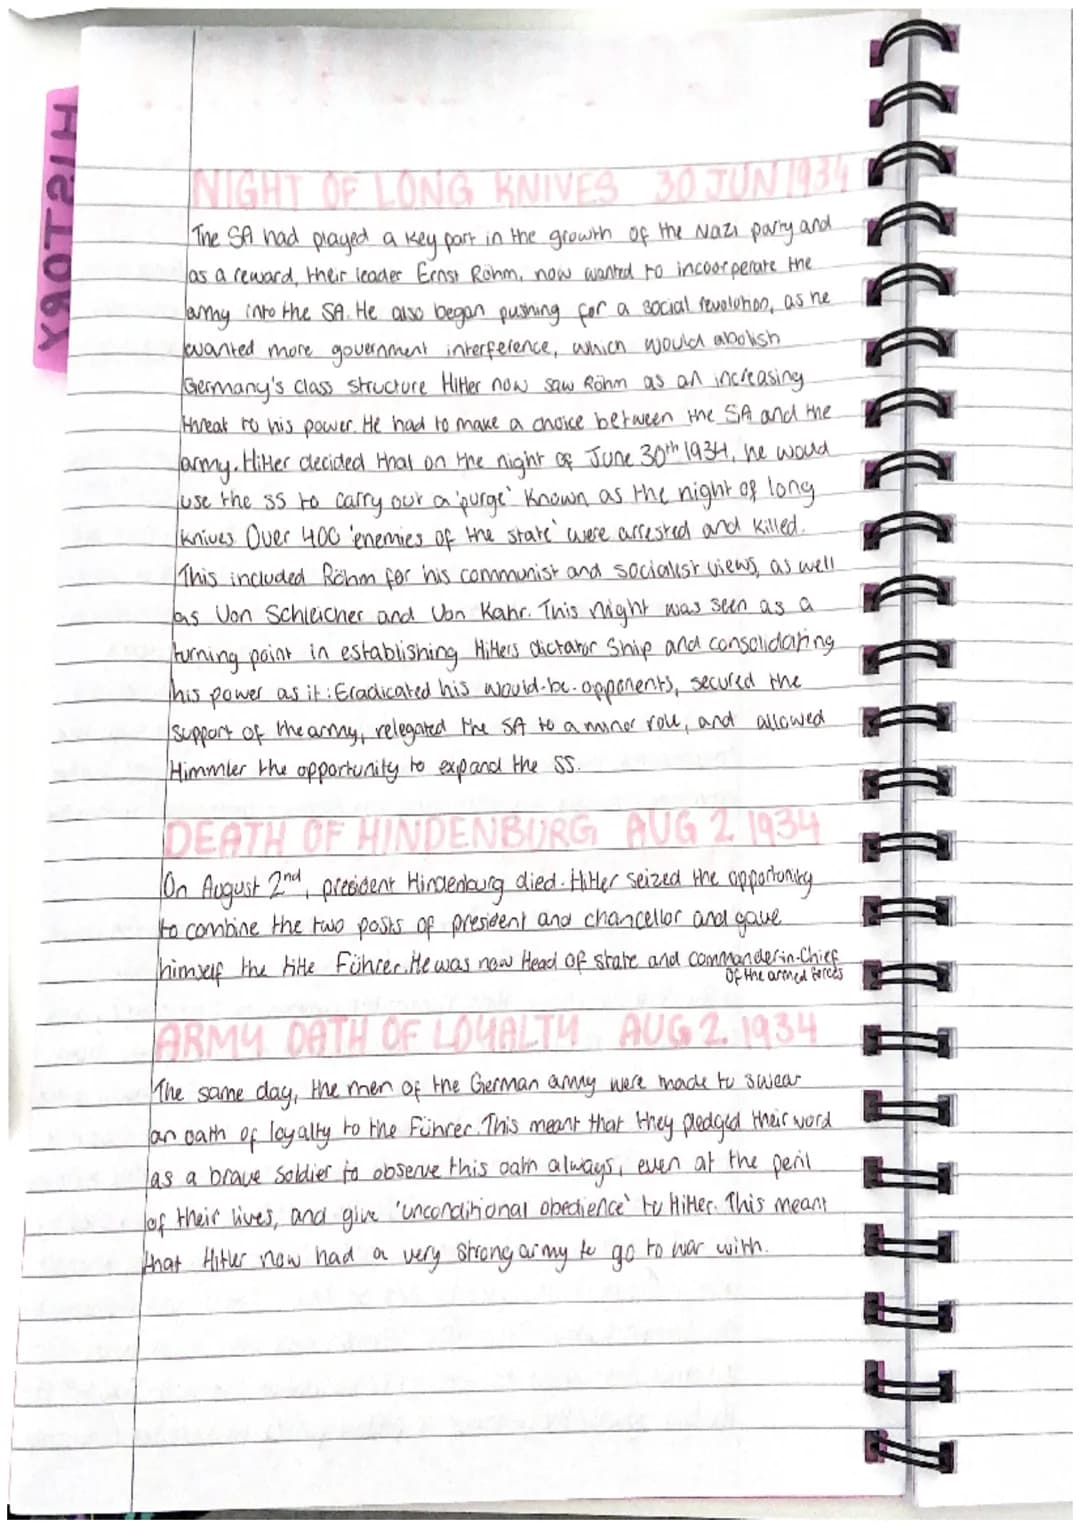 HISTORY
NIGHT OF LONG KNIVES 30 JUN 1934
The SA had played a key part in the growth of the Nazi party and
as a reward, their leader Ernst Röhm, now wanted to incoorperate the
army into the SA. He also began pushing for a social revolution, as he
wanted more government interference, which would abolish
Germany's class structure Hitler now saw Röhm as an increasing
threat to his power. He had to make a choice between the SA and the
army. Hitler decided that on the night of June 30th 1934, he would
use the SS to carry out a 'purge' known as the night of long
knives Over 400 'enemies of the state' were arrested and killed.
This included Röhm for his communist and socialist views, as well
as Von Schleicher and Von Kahr. This night was seen as a
turning point in establishing Hitlers dictator ship and consolidating
his power as it: Eradicated his would-be-opponents, secured the
support of the army, relegated the SA to a minor role, and allowed
Himmler the opportunity to expand the SS.
DEATH OF HINDENBURG AUG 2 1934
On August 2nd, president Hindenburg died. Hitler seized the opportunity
to combine the two posts of president and chancellor and gave
himself the title Führer. He was now Head of state and commander-in-Chief
of the armed forces
ARMY OATH OF LOYALTY AUG 2. 1934
The same day, the men of the German army were made to swear
an oath of loyalty to the Führer. This meant that they pledged their word
as a brave soldier to observe this oath always, even at the peril
of their lives, and give 'unconditional obedience' to Hitler. This meant
that Hitler now had a very strong army to go to war with.